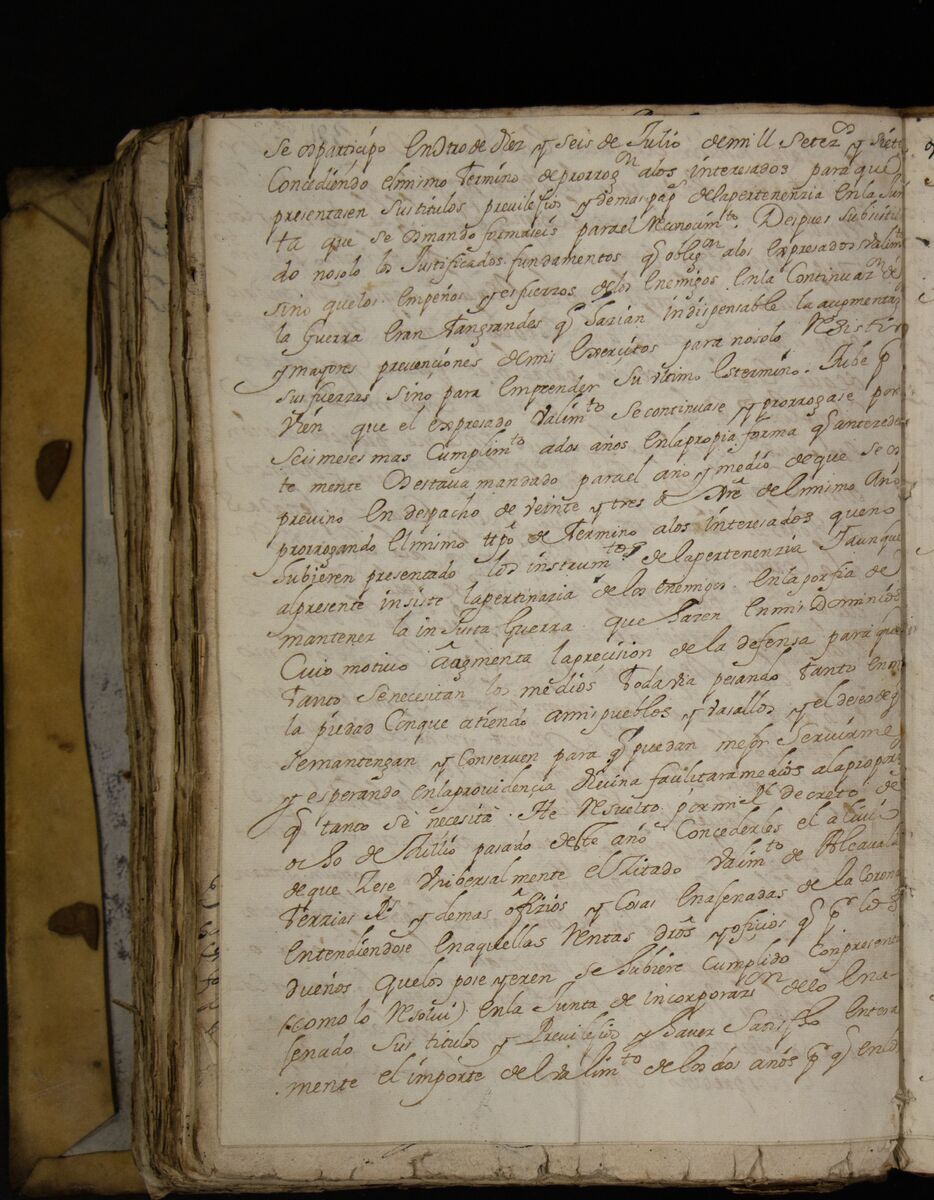 se os participó En otro de Diez y seis de Julio de mill setez.os y siete
Concediendo el mismo Termino de prorrog.n a los interesados para que
presentasen sus titulos previlejios y demas pap.s de la pertenenzia En la Jun
ta que se os mando formaseis para el Reconocim.to Despues subsistien
do no solo los Justificados fundamentos q oblig.on a los expresados valim.tos
sino que los Empeños y esfuerzos de los Enemigos En la Continuaz.n de
la Guerra Eran tan grandes q Harian indispensable la augmentaz.n
y mayores prevenciones de mis Exercitos para no solo Resistir
sus fuerzas sino para Emprender Su ultimo Estermino. Tube p.r
vien que el expresado valim.to se continuase y prorrogase por
seis meses mas Cumplim.to a dos años En la propia forma q anteceden
te mente Os estava mandado para el año y medio de que se os
previno En despacho de veinte y tres de del mismo Año
prorrogando El mismo tpo de Termino a los interesados que no
hubieren presentado los instrum.tos de la pertenenzia Y aunque
al presente insiste la pertinazia de los enemigos En la porfia de
mantener la inJusta Guerra que Hazen En mis Dominios
Cuio motivo augmenta la precision de la defensa para que
tanto se necesitan los medios Toda via pesando tanto En mi
la piedad Con que atiendo a mis pueblos y vasallos y el deseo de q
se mantengan y Conserven para q puedan mejor Servirme
y esperando En la providencia Divina facilitara medios a lo
q tanto se necesita. He Resuelto por mi R.l decreto de
ocho de Jullio pasado deste año Concederles el alivio
de que Zese Vnibersalmente el Zitado valim.to de Alcavalas
Terzias R.s y demas offizios y Cosas Enajenadas de la Corona
Entendiendose En aquellas Ventas dros y oficios q p.r los
dueños que los poseyeren se hubiere Cumplido Con presentar
(como lo Resolvi) En la Junta de incorporaz.on de lo Ena-
jenado sus titulos y Previlejios y haver Satisfho Entera
mente el importe del valim.to de los dos años p.r q En los